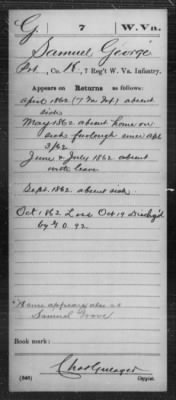 G. 7 W. Va.
Samuel George
Pvt., Co. K, 7 Reg't W. Va. Infantry.
Appears on Returns as follows:
April 1862 (7 Va Inf) absent
sick
May 1862 absent home on
sick furlough since Apl
3/62
June & July 1862 absent
with leave
Sept. 1862 absent sick
Oct 1862 Oct 19 Disch'g'd
by G.O. 92.
Name appears also as
Samuel
Book mark:
(546) Copyist.